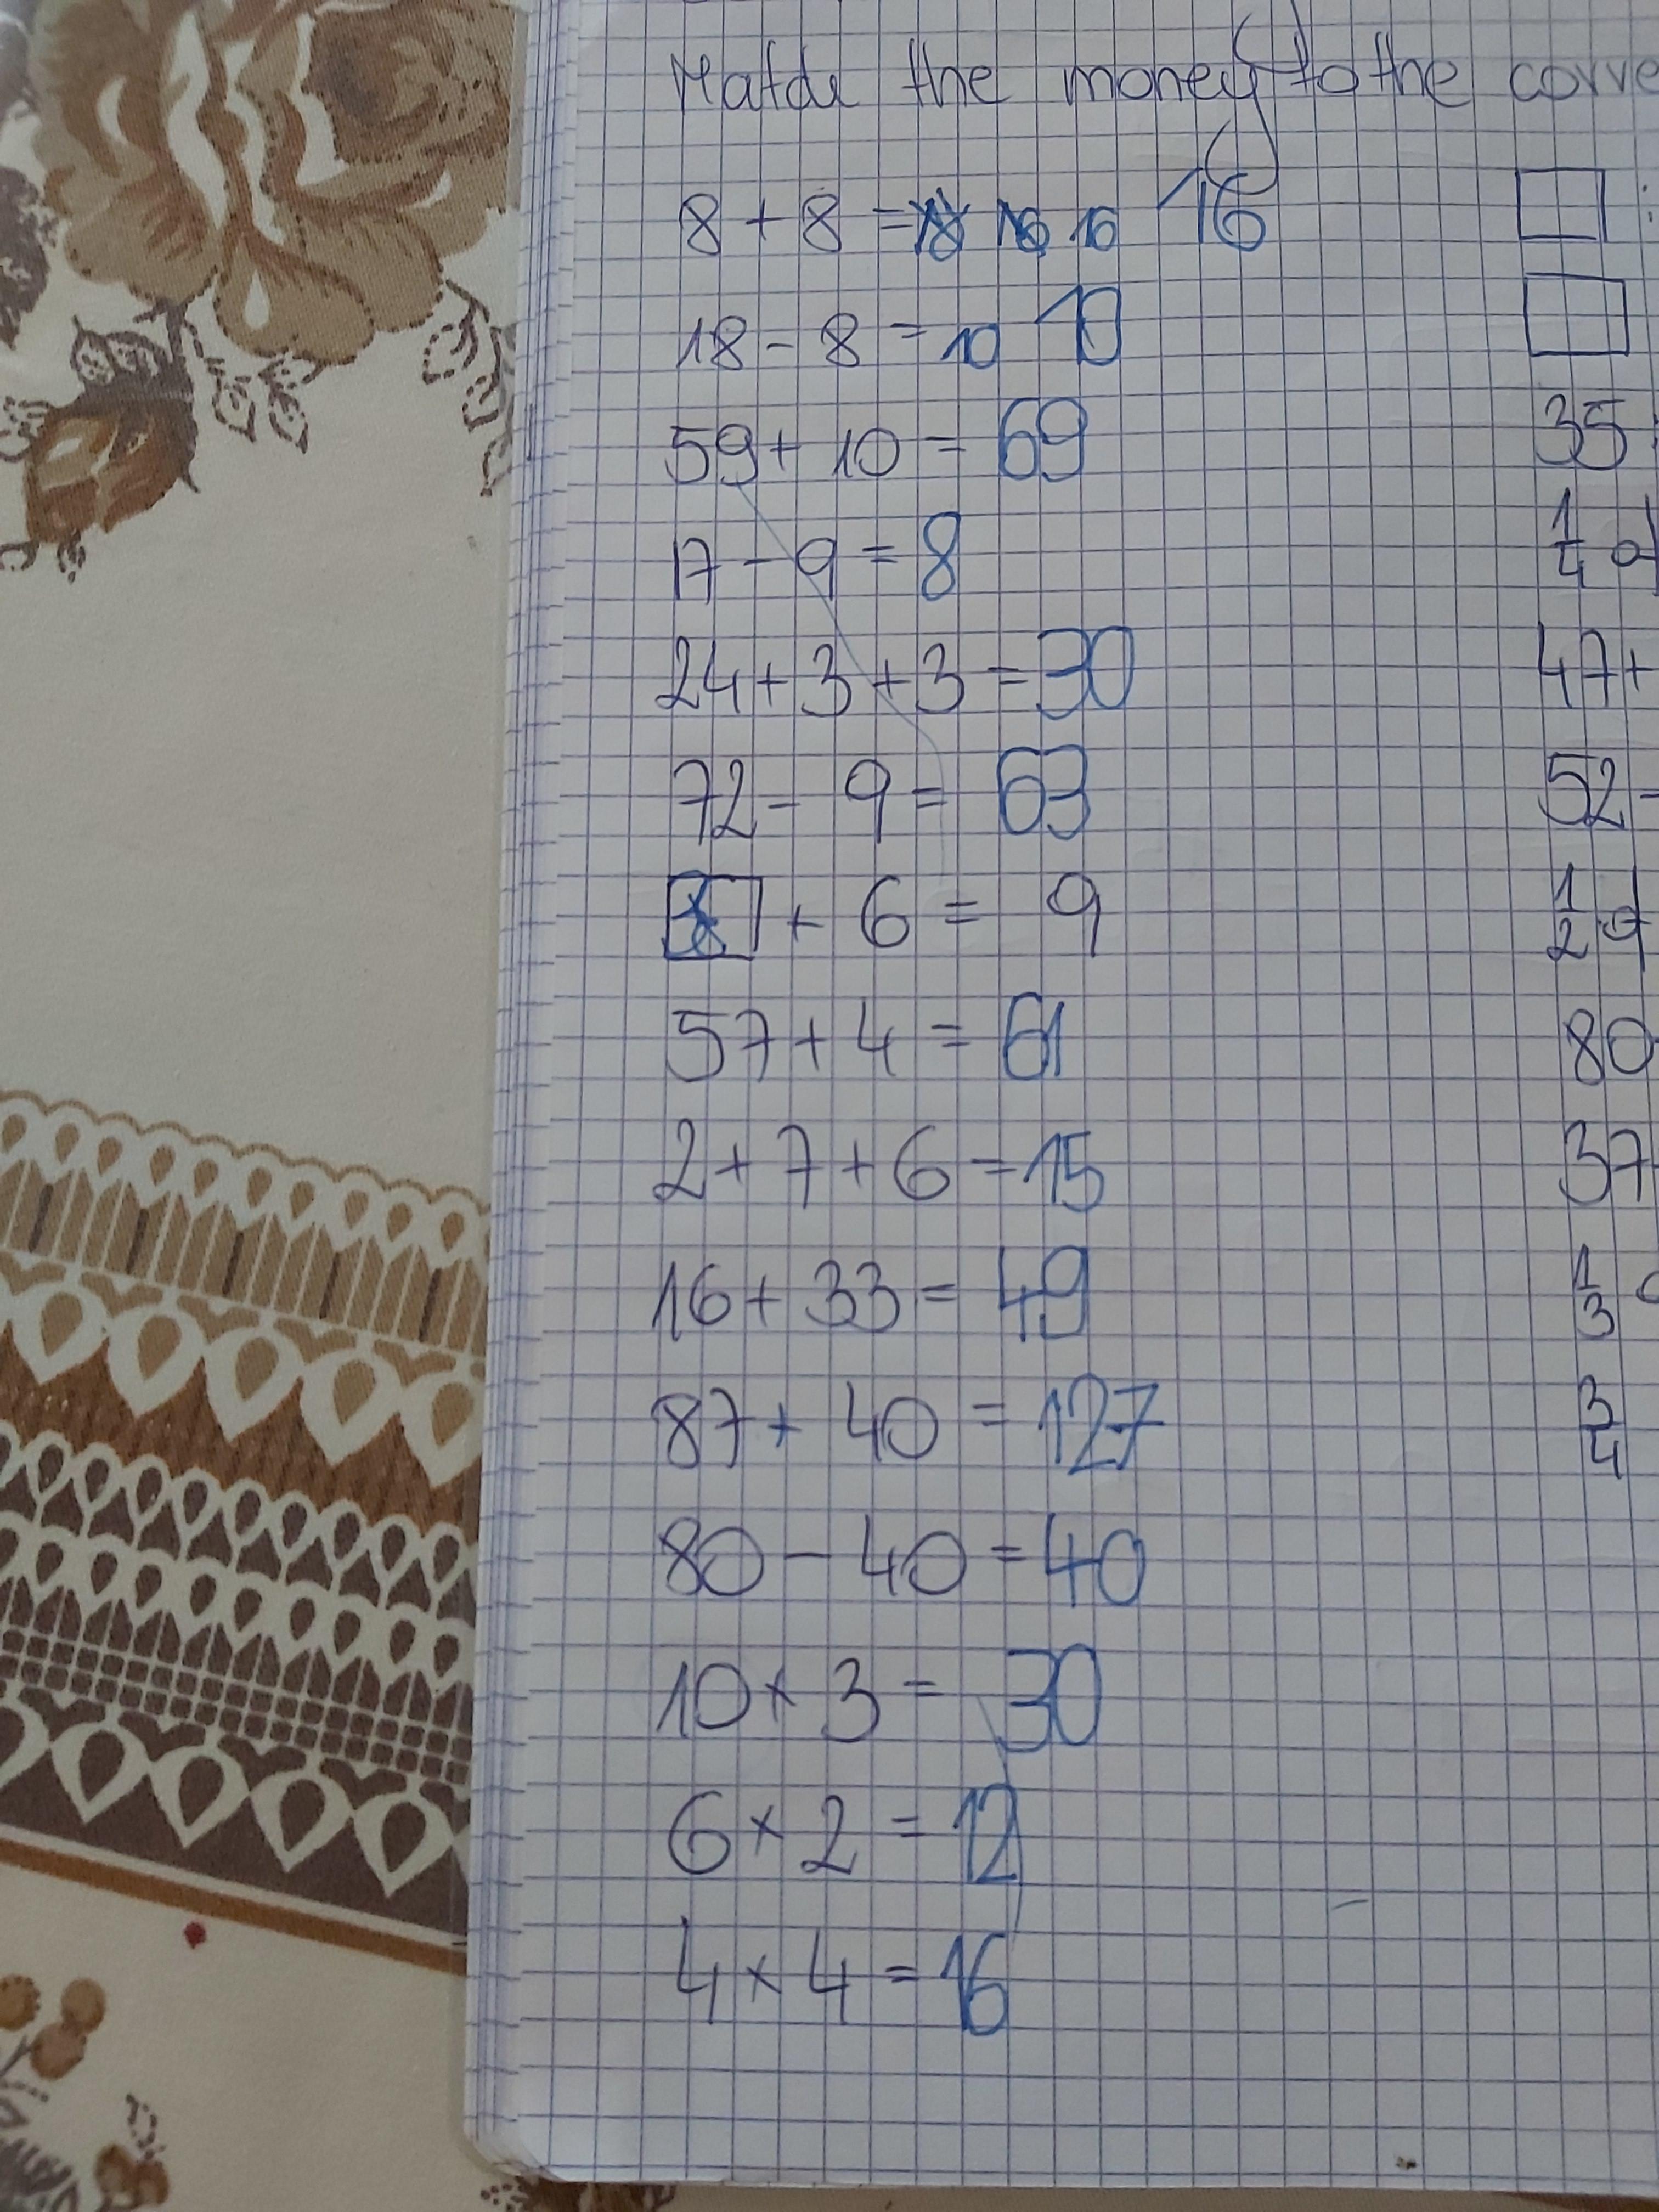 Match the money to the corre
8 + 8 = 16 16
18 - 8 = 10 10
59 + 10 = 69
17 - 9 = 8
24 + 3 + 3 = 30
72 - 9 = 63
+ 6 = 9
57 + 4 = 61
2 + 7 + 6 = 15
16 + 33 = 49
87 + 40 = 127
80 - 40 = 40
10 x 3 = 30
6 x 2 = 12
4 x 4 = 16
:
35 :
1/4 of
47 +
52 -
1/2 of
80
37
1/3
3/4